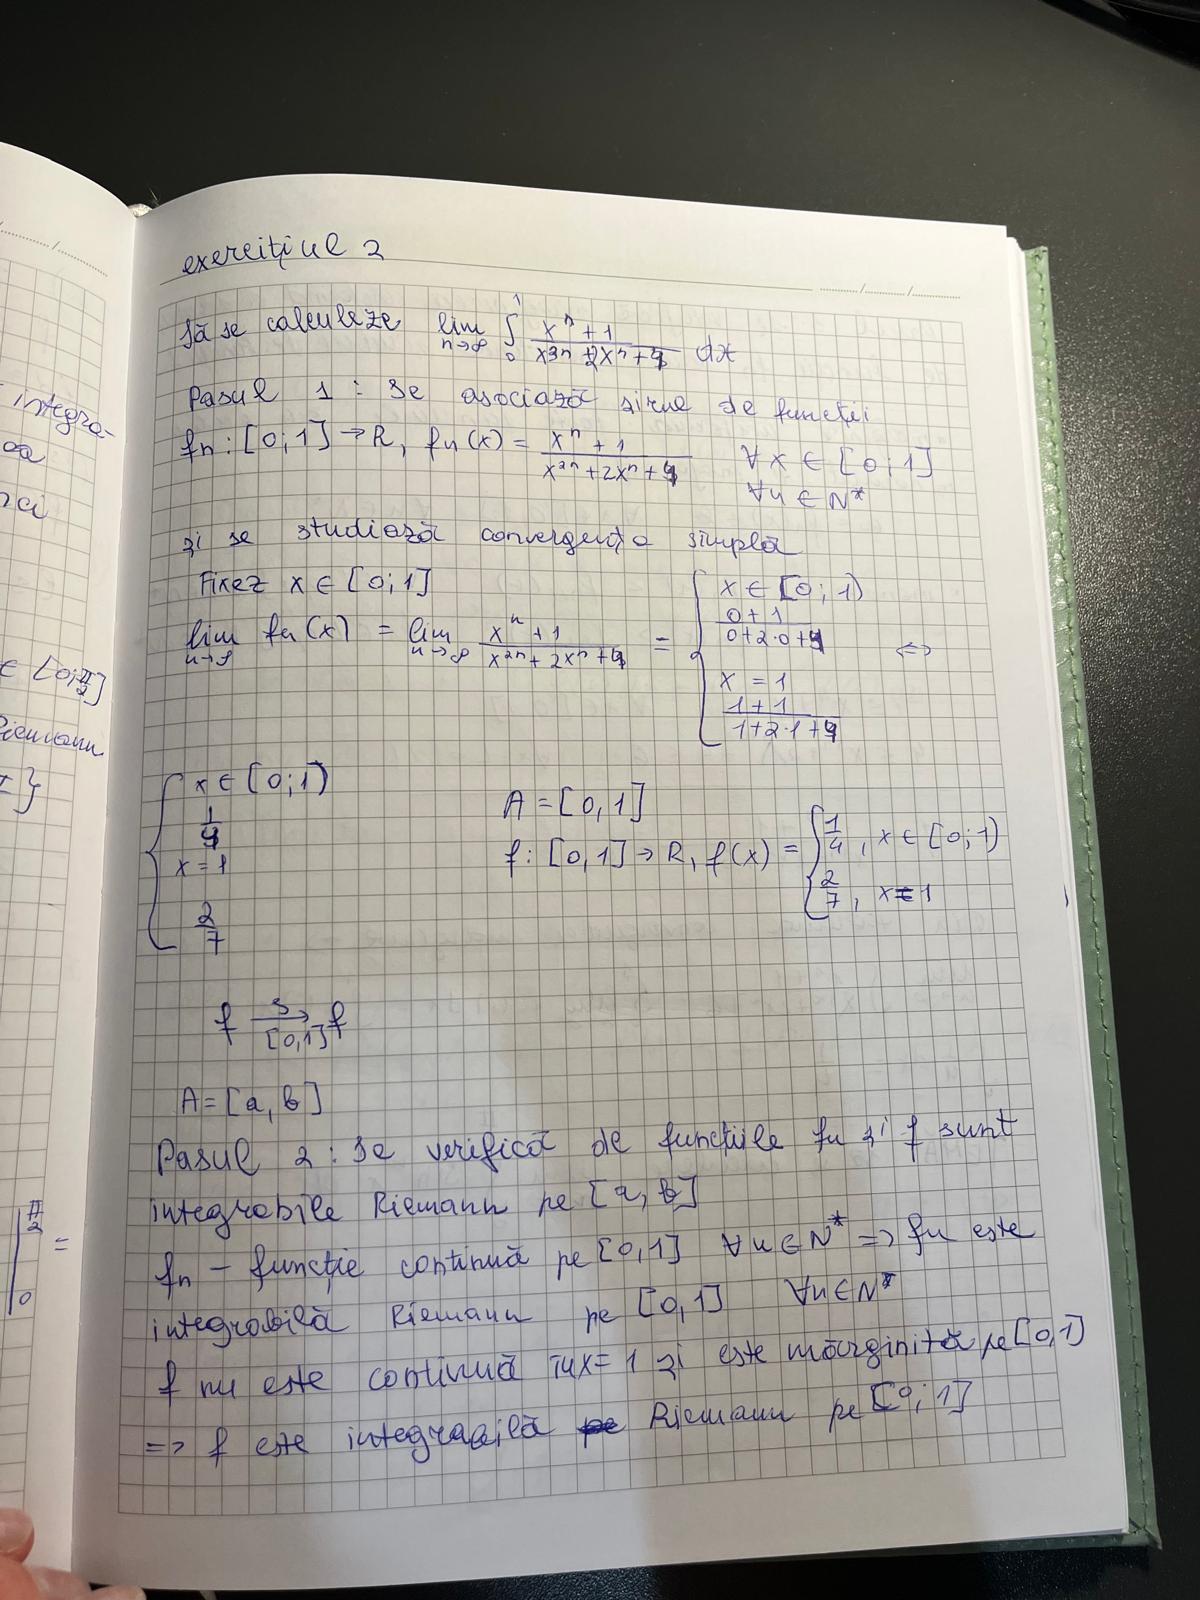 integra-
oa
rci
∈ [0;π/2]
Riemann
I}
|π/2 0 =
exercițiul 2
Să se calculeze lim n→∞ ∫ 0 1 (x^n + 1)/(x^2n + 2x^n + 4) dx
Pasul 1 : se asociază șirul de funcții
fn : [0;1] → R, fn(x) = (x^n + 1)/(x^2n + 2x^n + 4) ∀x ∈ [0;1]
∀n ∈ N*
și se studiază convergența simplă
Fixez x ∈ [0;1]
lim n→∞ fn(x) = lim n→∞ (x^n + 1)/(x^2n + 2x^n + 4) = { x ∈ [0;1) (0+1)/(0+2·0+4) x = 1 (1+1)/(1+2·1+4) ⇔
{ x ∈ [0;1) 1/4 x = 1 2/7
A = [0,1]
f : [0,1] → R, f(x) = { 1/4, x ∈ [0;1) 2/7, x = 1
f s→ [0,1] f
A = [a, b]
Pasul 2 : se verifică de funcțiile fn și f sunt
integrabile Riemann pe [a, b]
fn - funcție continuă pe [0,1] ∀n ∈ N* => fn este
integrabilă Riemann pe [0,1] ∀n ∈ N*
f nu este continuă în x = 1 și este mărginită pe [0,1]
=> f este integrabilă Riemann pe [0;1]